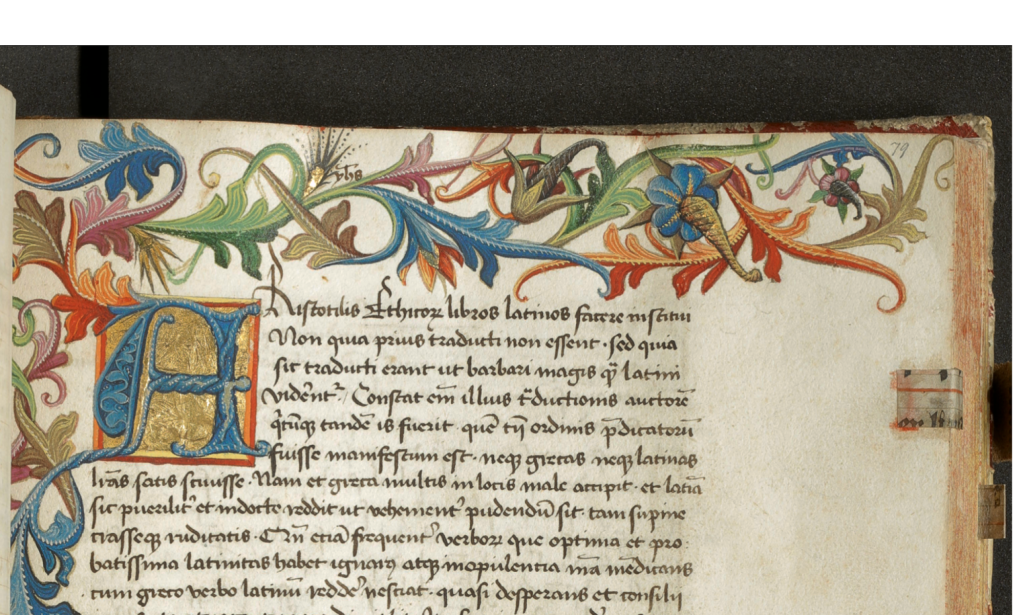 79
yhs
ARistotilis Ethicoꝝ libros latinos facere institui
Non quia prius traducti non essent · sed quia
sic traducti erant ut barbari magis qᷓ latini
vident᷑ Constat em̄ illius t᷑ductionis auctorē
tandē is fuerit · quē tn̄ ordinis p̄dicatorū
fuisse manifestum est · neqꝫ grecas neqꝫ latinas
lr̄as satis scivisse · Nam et greca multis in locis male accipit · et latia
sic puerilit᷑ et indocte reddit ut vehement᷑ pudendū sit · tam supine
crasseqꝫ ruditatis · etiā frequent᷑ verboꝝ que optima et pro
batissima latinitas habet ignarꝯ atqꝫ inopulentia nr̄a mēdicans
cum greco verbo latinū redde᷑ nesciat · quasi desperans et consilii